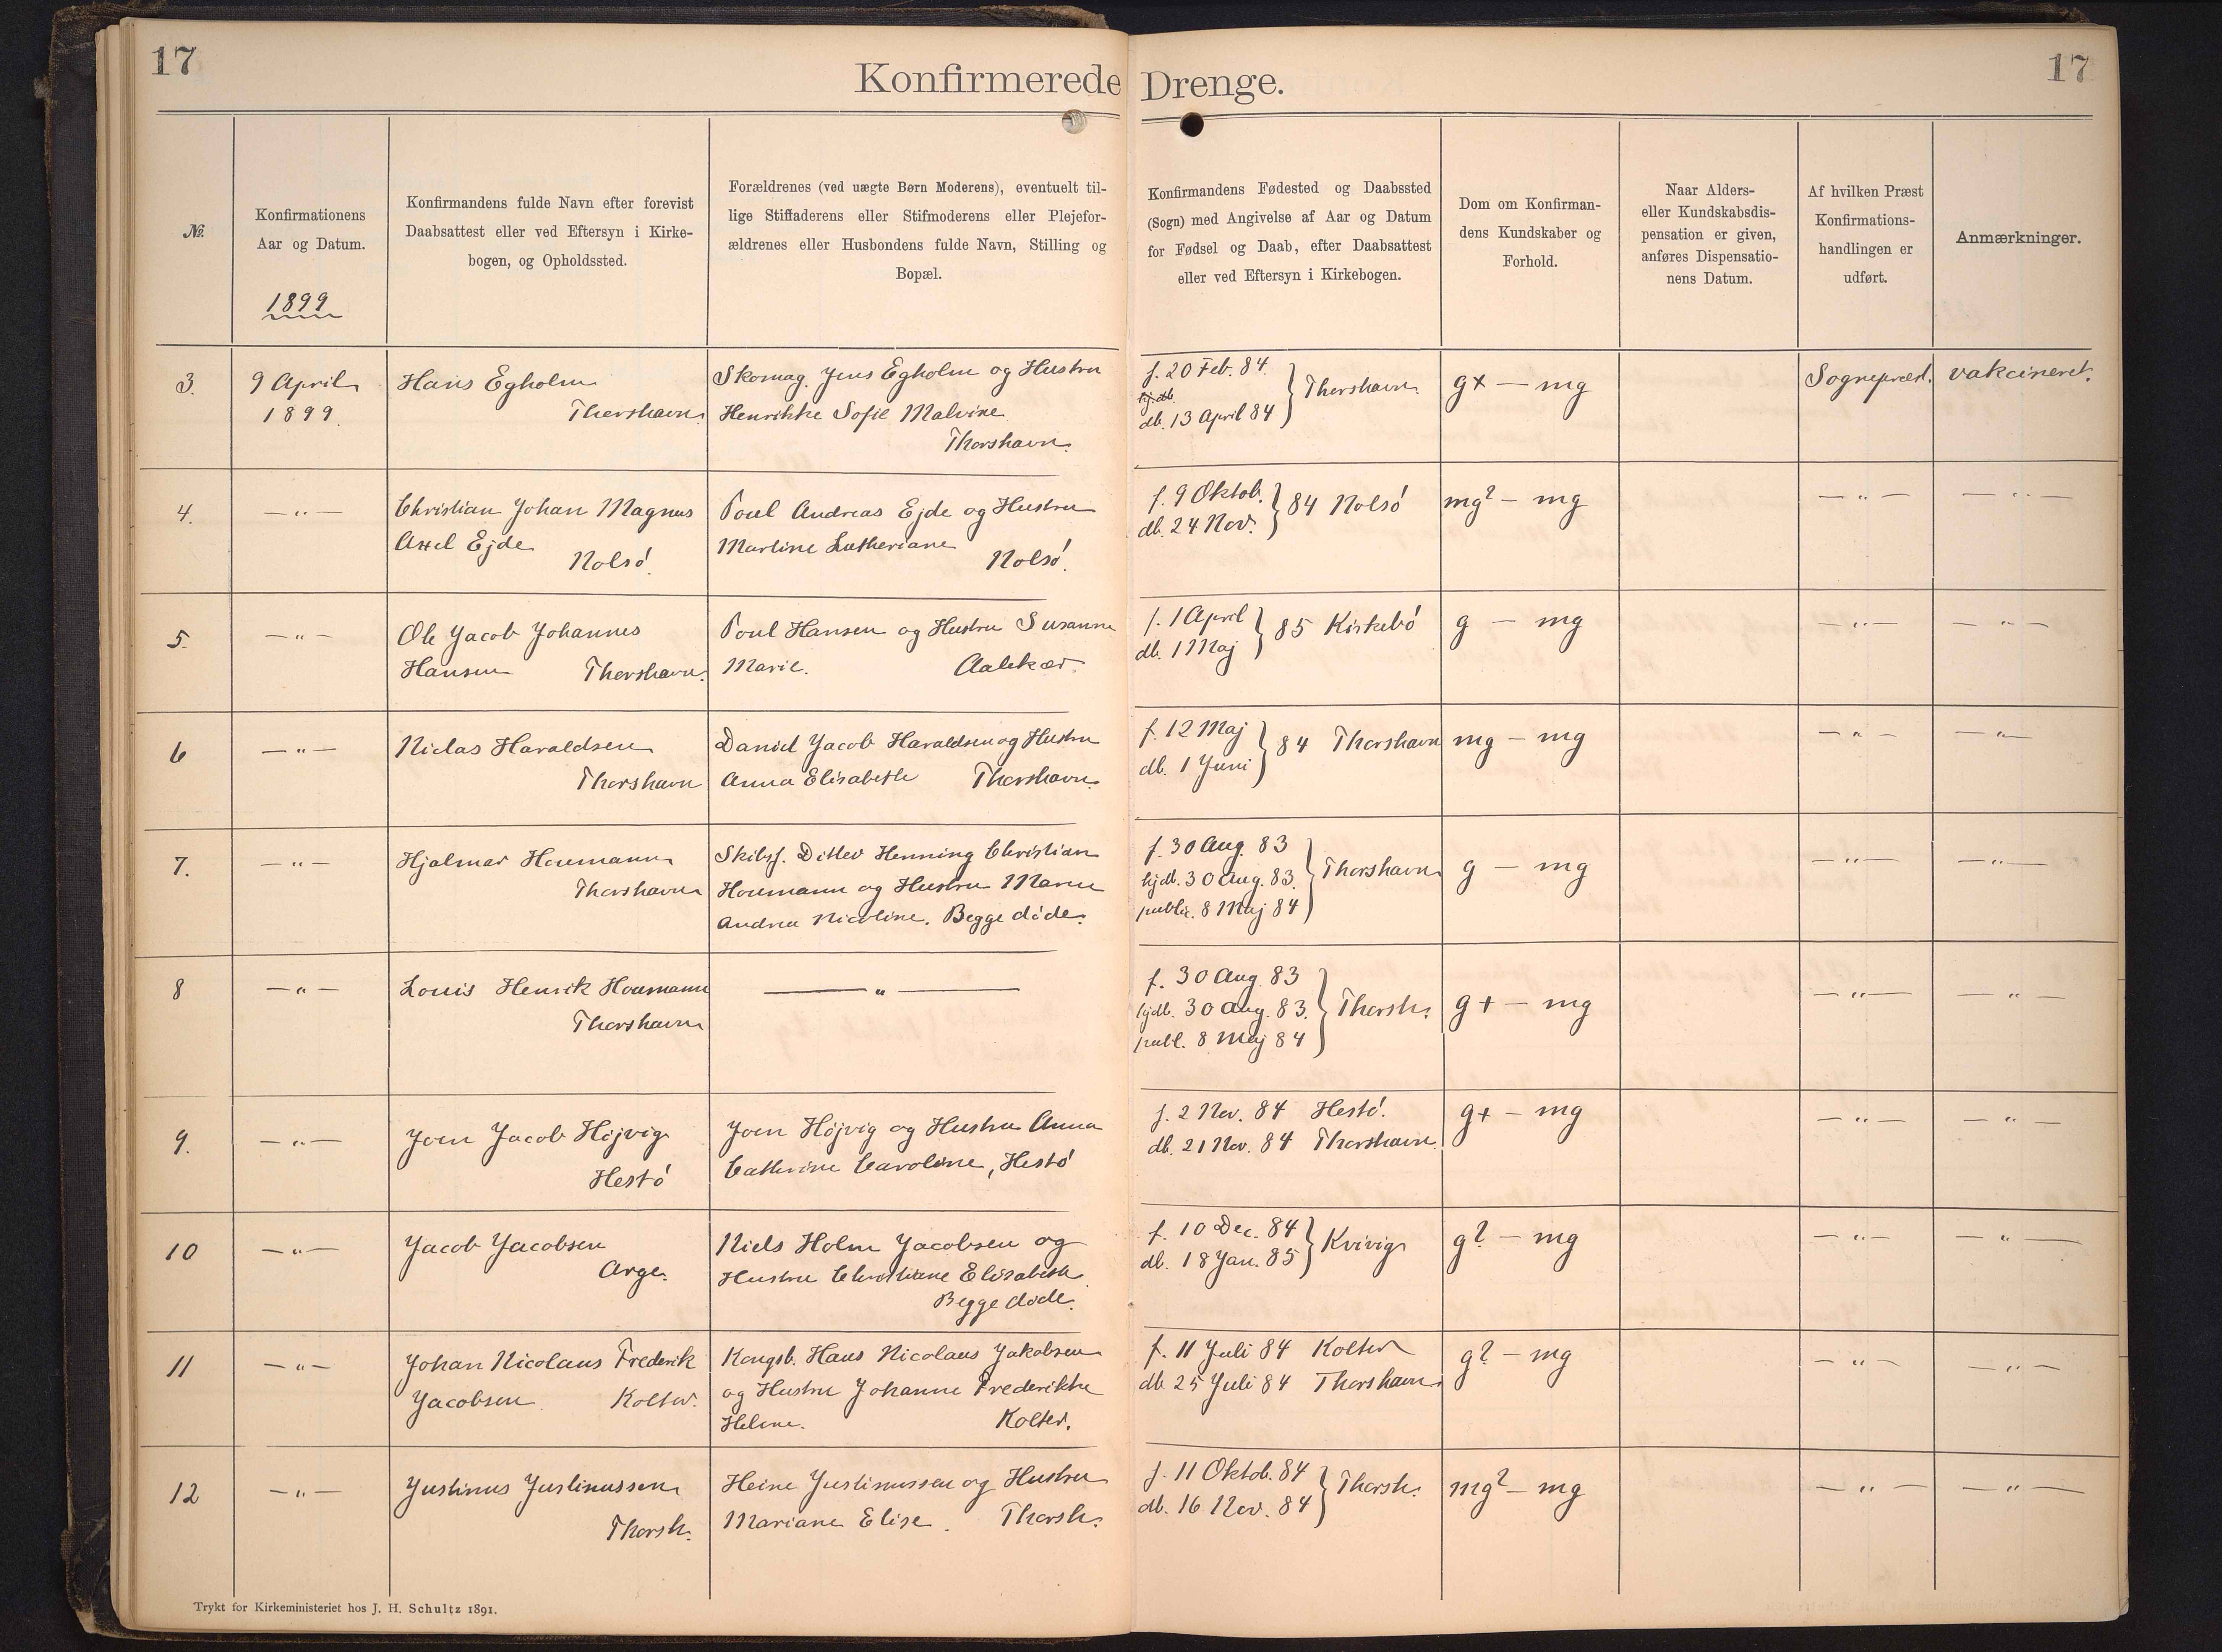 17
Konfirmerede Drenge.
17
Nr.
Konfirmationens
Aar og Datum.
1899
Konfirmandens fulde Navn efter forevist
Daabsattest eller ved Eftersyn i Kirke-
bogen, og Opholdssted.
Forældrenes (ved uægte Børn Moderens), eventuelt til-
lige Stiffaderens eller Stifmoderens eller Plejefor-
ældrenes eller Husbondens fulde Navn, Stilling og
Bopæl.
Konfirmandens Fødested og Daabssted
(Sogn) med Angivelse af Aar og Datum
for Fødsel og Daab, efter Daabsattest
eller ved Eftersyn i Kirkebogen.
Dom om Konfirman-
dens Kundskaber og
Forhold.
Naar Alders-
eller Kundskabsdis-
pensation er given,
anføres Dispensatio-
nens Datum.
Af hvilken Præst
Konfirmations-
handlingen er
udført.
Anmærkninger.
3.
9 April
1899.
Hans Egholm
Thorshavn.
Skomag. Jens Egholm og Hustru
Henrikke Sofie Malvine
Thorshavn.
f. 20 Feb. 84.
db. 13 April 84
Thorshavn.
g+ — mg
Sognepræst.
vakcineret.
4.
— " —
Christian Johan Magnus
Axel Ejde
Nolsö.
Poul Andreas Ejde og Hustru
Martine Lutheriane
Nolsö.
f. 9 Oktob.
db. 24 Nov.
84 Nolsö
mg? — mg
— " —
— " —
5.
— " —
Ole Jacob Johannes
Hansen Thorshavn.
Poul Hansen og Hustru Susanne
Marie. Aalekær.
f. 1 April
db. 1 Maj
85 Kirkebö
g — mg
— " —
— " —
6
— " —
Niclas Haraldsen
Thorshavn
Daniel Jacob Haraldsen og Hustru
Anna Elisabeth Thorshavn.
f. 12 Maj
db. 1 Juni
84 Thorshavn
mg — mg
— " —
— " —
7.
— " —
Hjalmar Houmann
Thorshavn
Skibsf. Ditlev Henning Christian
Houmann og Hustru Maren
Andrea Nicoline. Begge döde.
f. 30 Aug. 83
hjdb. 30 Aug. 83.
public. 8 Maj 84
Thorshavn
g — mg
— " —
— " —
8
— " —
Louis Henrik Houmann
Thorshavn
— " —
f. 30 Aug. 83
hjdb. 30 Aug. 83.
publ. 8 Maj 84
Thorsh.
g+ — mg
— " —
— " —
9.
— " —
Joen Jacob Höjvig
Hestö
Joen Höjvig og Hustru Anna
Cathrine Caroline, Hestö
f. 2 Nov. 84 Hestö.
db. 21 Nov. 84 Thorshavn.
g+ — mg
— " —
— " —
10
— " —
Jacob Jacobsen
Arge.
Niels Holm Jacobsen og
Hustru Christiane Elisabeth.
Begge döde.
f. 10 Dec. 84
db. 18 Jan. 85
Kvivig
g? — mg
— " —
— " —
11
— " —
Johan Nicolaus Frederik
Jacobsen. Kolter.
Kongsb. Hans Nicolaus Jakobsen
og Hustru Johanne Frederikke
Helene. Kolter.
f. 11 Juli 84 Kolter
db. 25 Juli 84 Thorshavn.
g? — mg
— " —
— " —
12
— " —
Justinus Justinussen
Thorsh.
Heine Justinussen og Hustru
Mariane Elise. Thorsh.
f. 11 Oktob. 84
db. 16 Nov. 84
Thorsh.
mg? — mg
— " —
— " —
Trykt for Kirkeministeriet hos J. H. Schultz 1891.